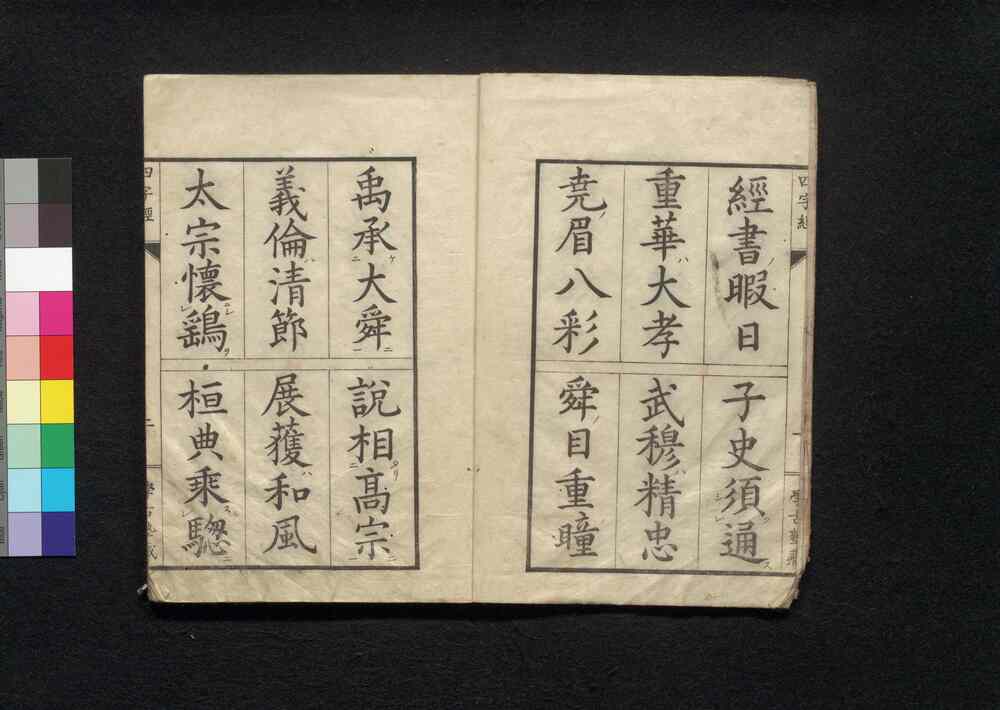 四字經
經書暇日
子史須通
重華大孝
武穆精忠
堯眉八彩
舜目重瞳
禹承大舜
說相高宗
義倫清節
展蒦和風
太宗懷鷂
桓典乘驄
四字經